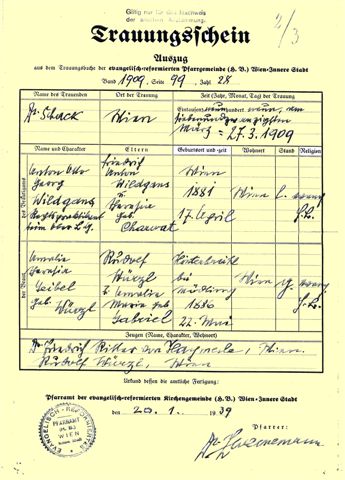 Giltig nur für den Nachweis
der arischen Abstammung.
2/3
Trauungsschein
Auszug
aus dem Trauungsbuche der evangelisch-reformierten Pfarrgemeinde (H. B.) Wien-Innere Stadt
Band 1909. Seite 99. Zahl 28
Name des Trauenden
Ort der Trauung
Zeit (Jahr, Monat, Tag) der Trauung
Dr. Schack
Wien
Eintausend neunhundert neun, den
siebenundzwanzigsten
März = 27.3.1909
Name und Charakter
Eltern
Geburtsort und -zeit
Wohnort
Stand
Religion
Des Bräutigams
Anton Otto
Georg
Wildgans
Rechtspraktikant
Friedrich
Anton
Wildgans
u
Therese
geb.
Charwat
Wien
1881
17. April
Wien
l.
evang
H.B.
Der Braut
Amalie
Therese
Seibel
geb.
Würzl
Rudolf
Würzl
u. Amalie
Maria geb.
Gabriel
Hinterbrühl
bei
Mödling
1886
22. Mai
Wien
g.
evang
H.B.
Zeugen (Name, Charakter, Wohnort)
Dr. Friedrich Ritter von Haymerle, Wien.
Rudolf Würzl, Wien
Urkund dessen die amtliche Fertigung:
Pfarramt der evangelisch-reformierten Kirchengemeinde (H. B.) Wien-Innere Stadt
den 20. 1. 1939
Pfarrer:
EVANGELISCH-REFORMIERTES
PFARRAMT
H. B.
WIEN